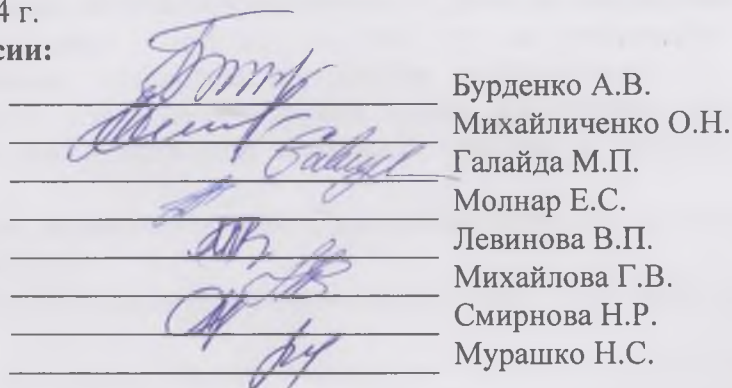 4 г.
сии:
Бурденко А.В.
Михайличенко О.Н.
Галайда М.П.
Молнар Е.С.
Левинова В.П.
Михайлова Г.В.
Смирнова Н.Р.
Мурашко Н.С.